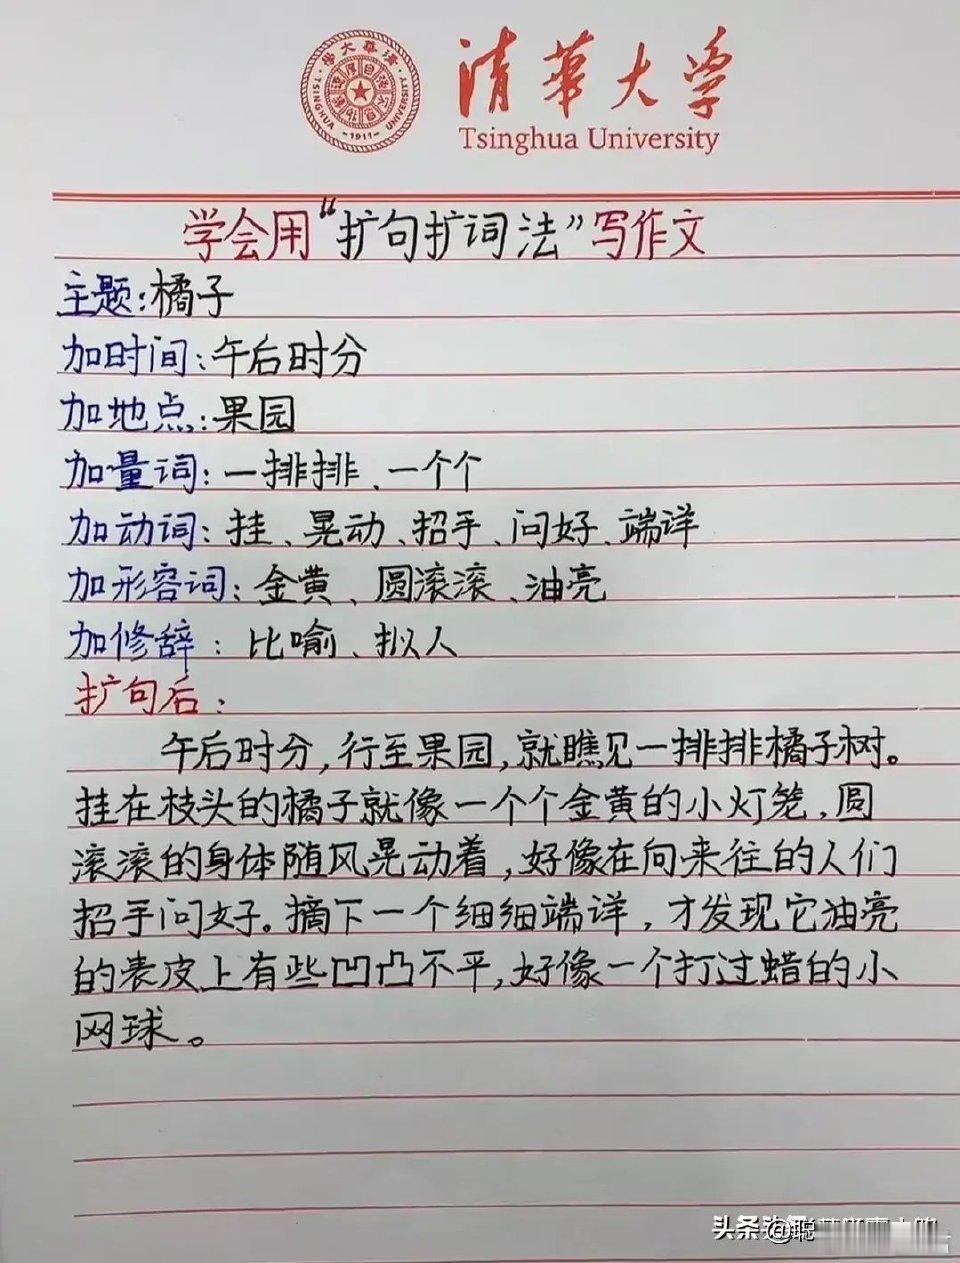 清華大学
Tsinghua University
TSINGHUA UNIVERSITY
-1911-
学会用“扩句扩词法”写作文
主题:橘子
加时间:午后时分
加地点:果园
加量词:一排排、一个个
加动词:挂、晃动、招手、问好、端详
加形容词:金黄、圆滚滚、油亮
加修辞:比喻、拟人
扩句后:
午后时分,行至果园,就瞧见一排排橘子树。
挂在枝头的橘子就像一个个金黄的小灯笼,圆
滚滚的身体随风晃动着,好像在向来往的人们
招手问好。摘下一个细细端详,才发现它油亮
的表皮上有些凹凸不平,好像一个打过蜡的小
网球。
头条 @聪